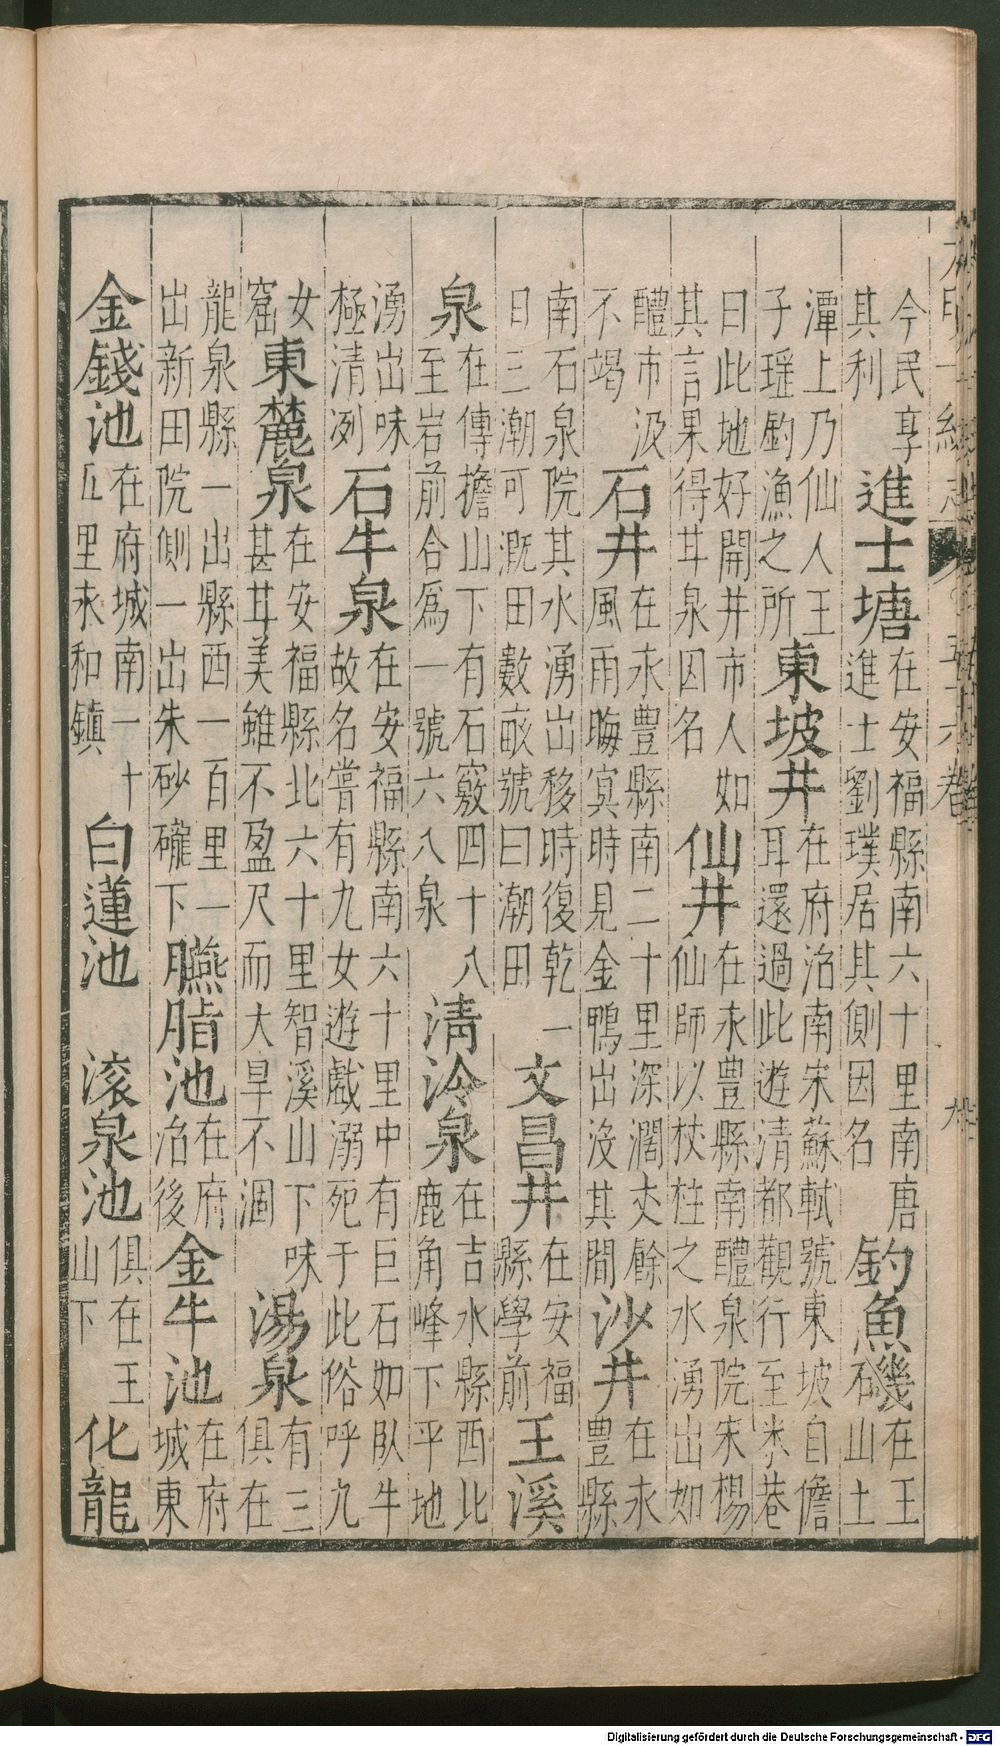 大明一統志 五十六卷 九
今民享其利進士塘在安福縣南六十里南唐進士劉璞居其側因名釣魚磯在王石山土
潭上乃仙人王子瑶釣漁之所東坡井在府治南宋蘇軾號東坡自儋耳還過此遊清都觀行至米巷
曰此地好開井市人如其言果得甘泉因名仙井在永豊縣南醴泉院宋楊仙師以杖柱之水湧出如
醴市汲不竭石井在永豊縣南二十里深濶丈餘風雨晦㝠時見金鴨出没其間沙井在永豊縣
南石泉院其水湧出移時復乾一日三潮可溉田數畝號曰潮田文昌井在安福縣學前王溪
泉在傳擔山下有石竅四十八至岩前合爲一號六八泉清泠泉在吉水縣西北鹿角峰下平地
湧出味極清冽石牛泉在安福縣南六十里中有巨石如臥牛故名嘗有九女遊戲溺死于此俗呼九
女窟東麓泉在安福縣北六十里智溪山下味甚甘美雖不盈尺而大旱不涸湯泉有三俱在
龍泉縣一出縣西一百里一出新田院側一出朱砂礲下臙脂池在府治後金牛池在府城東
金錢池在府城南一十五里永和鎮白蓮池 滾泉池俱在王山下化龍
Digitalisierung gefördert durch die Deutsche Forschungsgemeinschaft - DFG